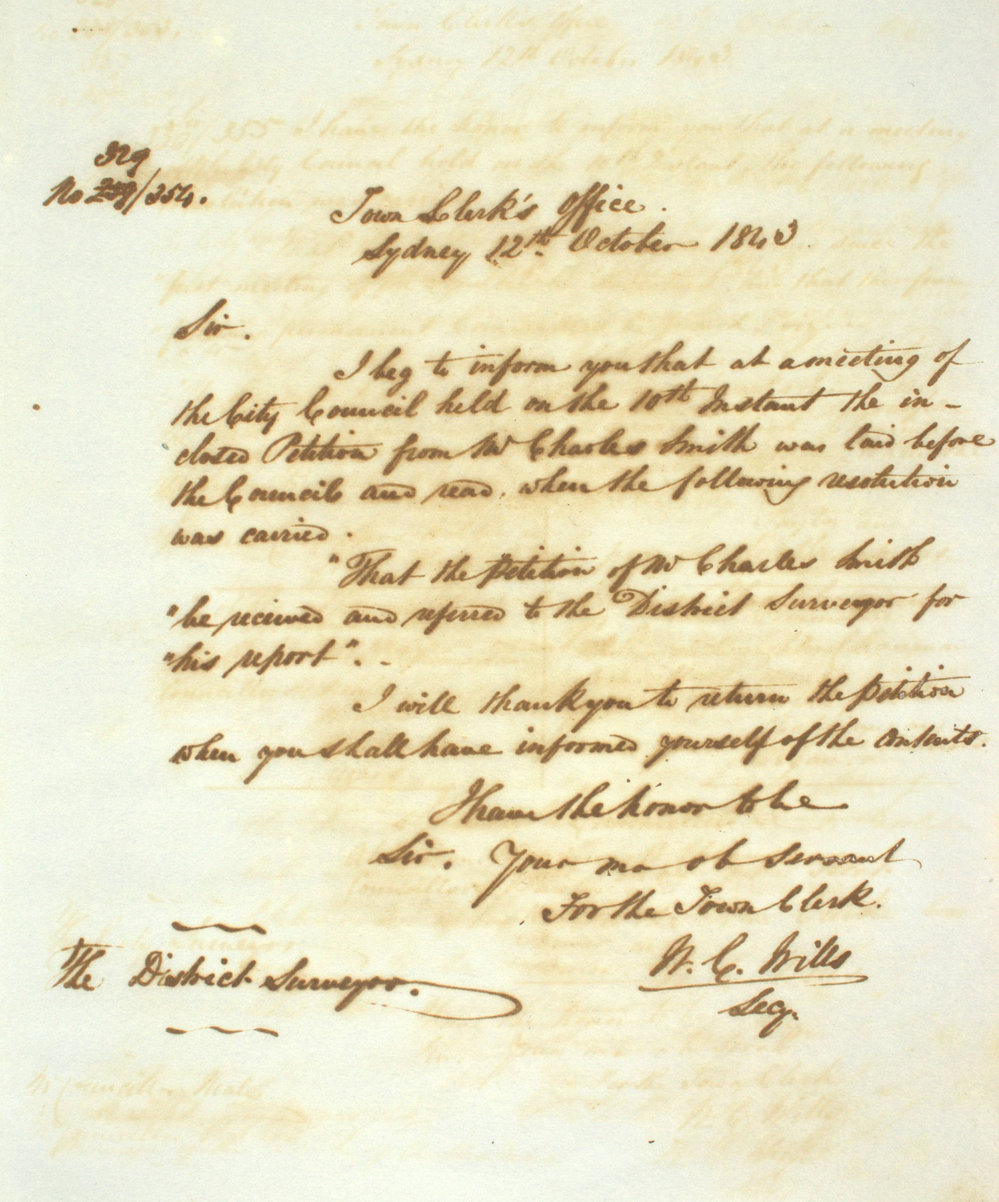 329
No 259/354.
Town Clerk's Office.
Sydney 12th October 1843.
Sir.
I beg to inform you that at a meeting of
the City Council held on the 10th Instant the in-
closed Petition from Mr Charles Smith was laid before
the Council and read, when the following resolution
was carried.
"That the Petition of Mr Charles Smith
"be received and referred to the District Surveyor for
"his report".
I will thank you to return the petition
when you shall have informed yourself of the contents.
I have the honor to be
Sir. Your mo ob Servant
For the Town Clerk.
W. C. Wills
Secy.
The District Surveyor.